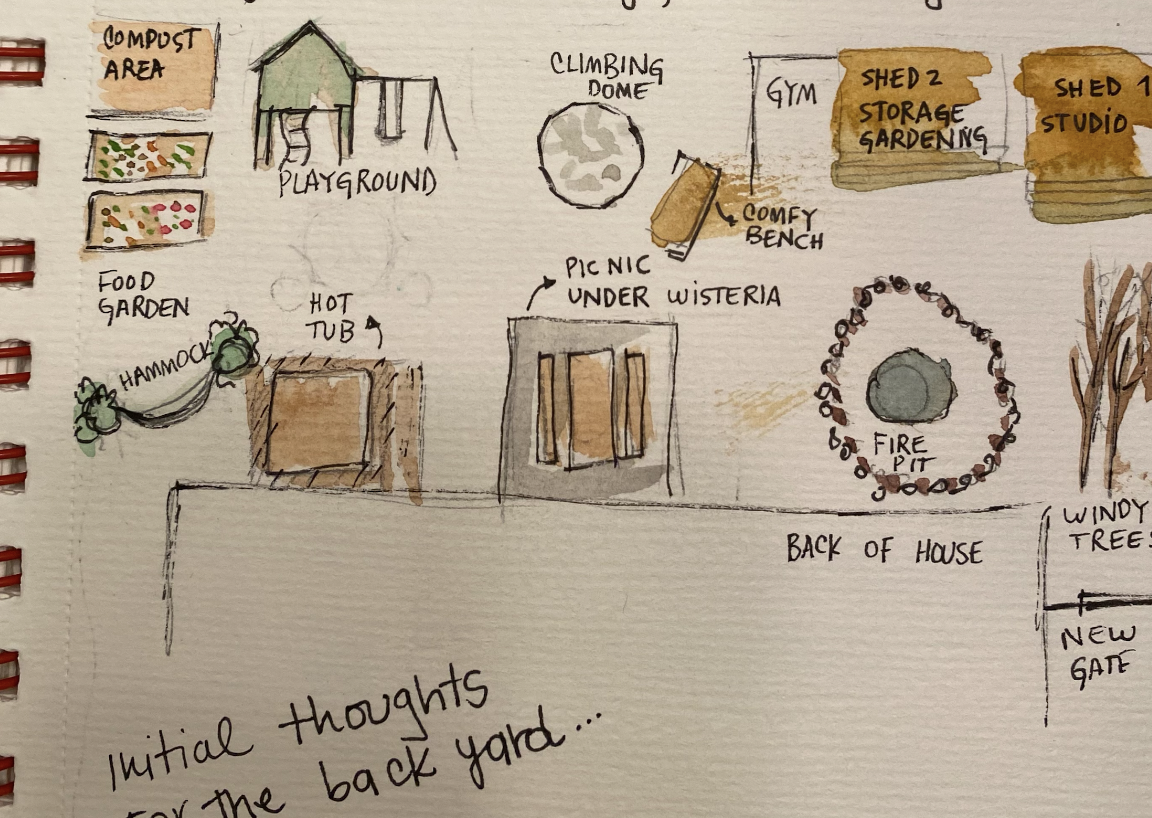 COMPOST
AREA
PLAYGROUND
CLIMBING
DOME
GYM
SHED 2
STORAGE
GARDENING
SHED 1
STUDIO
COMFY
BENCH
FOOD
GARDEN
HAMMOCK
HOT
TUB
PICNIC
UNDER WISTERIA
FIRE
PIT
WINDY
TREES
BACK OF HOUSE
NEW
GATE
Initial thoughts
For the back yard...